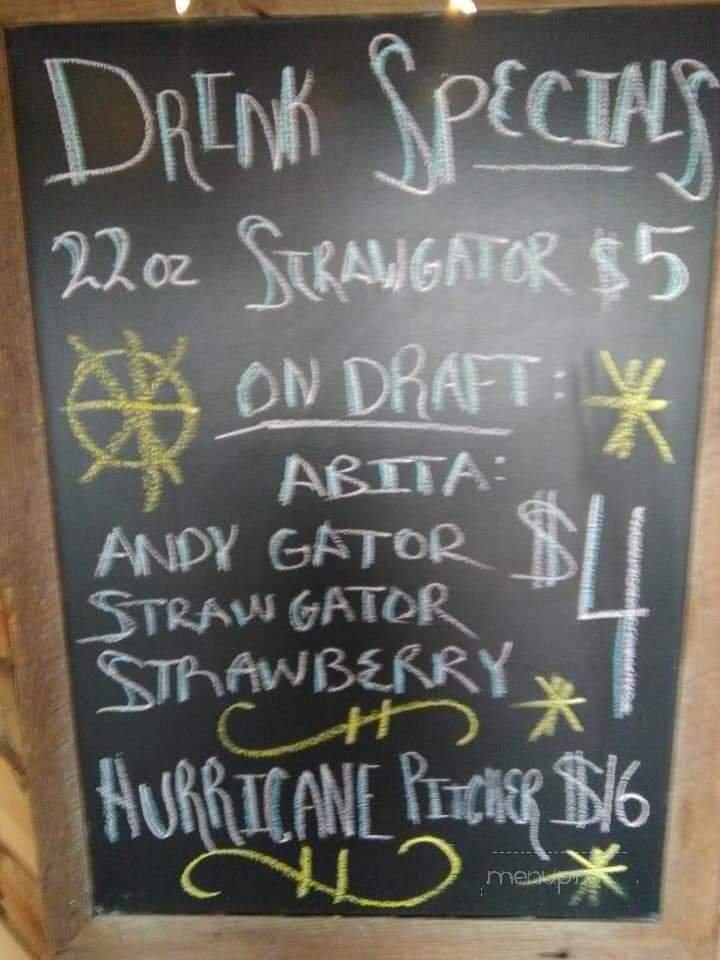 DRINK SPECIALS
22 oz STRAWGATOR $5
ON DRAFT:
ABITA:
ANDY GATOR $4
STRAW GATOR
STRAWBERRY
HURRICANE PITCHER $16